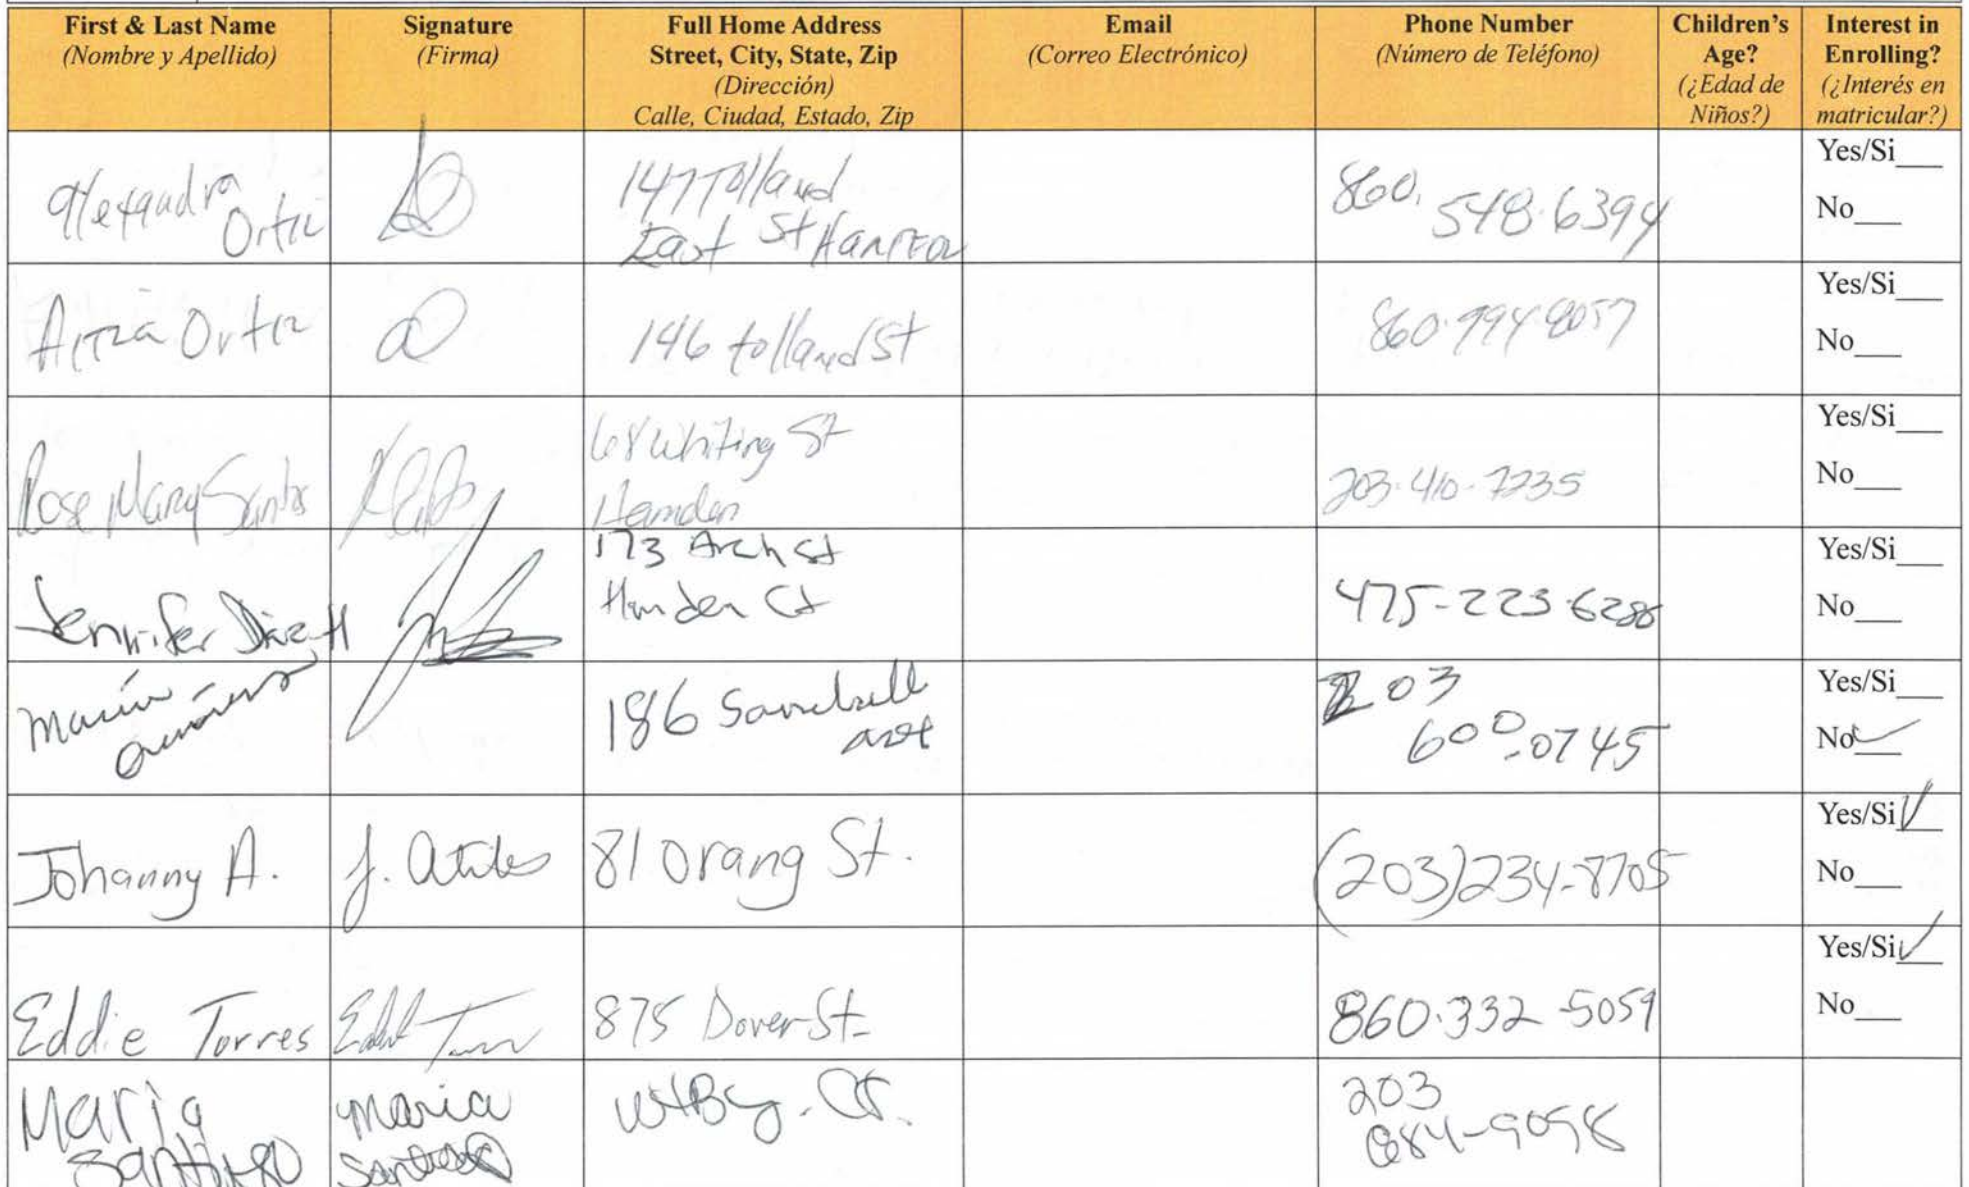 First & Last Name
(Nombre y Apellido)
Signature
(Firma)
Full Home Address
Street, City, State, Zip
(Dirección)
Calle, Ciudad, Estado, Zip
Email
(Correo Electrónico)
Phone Number
(Número de Teléfono)
Children's
Age?
(¿Edad de
Niños?)
Interest in
Enrolling?
(¿Interés en
matricular?)
Alexandra
Ortiz
147 Tolland
East St
860.
548.6394
Yes/Si___
No___
Ortiz
146 tolland St
860.994.8057
Yes/Si___
No___
Rose Mary Santos
68 Whiting St
Hamden
203.410-7235
Yes/Si___
No___
Jennifer
173 Arch St
Hamden Ct
475-223-6286
Yes/Si___
No___
186
203
600-0745
Yes/Si___
No___
Johanny A.
J. Atiles
81 Orang St.
(203)234-8705
Yes/Si___
No___
Eddie Torres
875 Dover St.
860.332-5059
Yes/Si___
No___
Maria
Santiago
Maria
Santiago
WtBy. Ct.
203